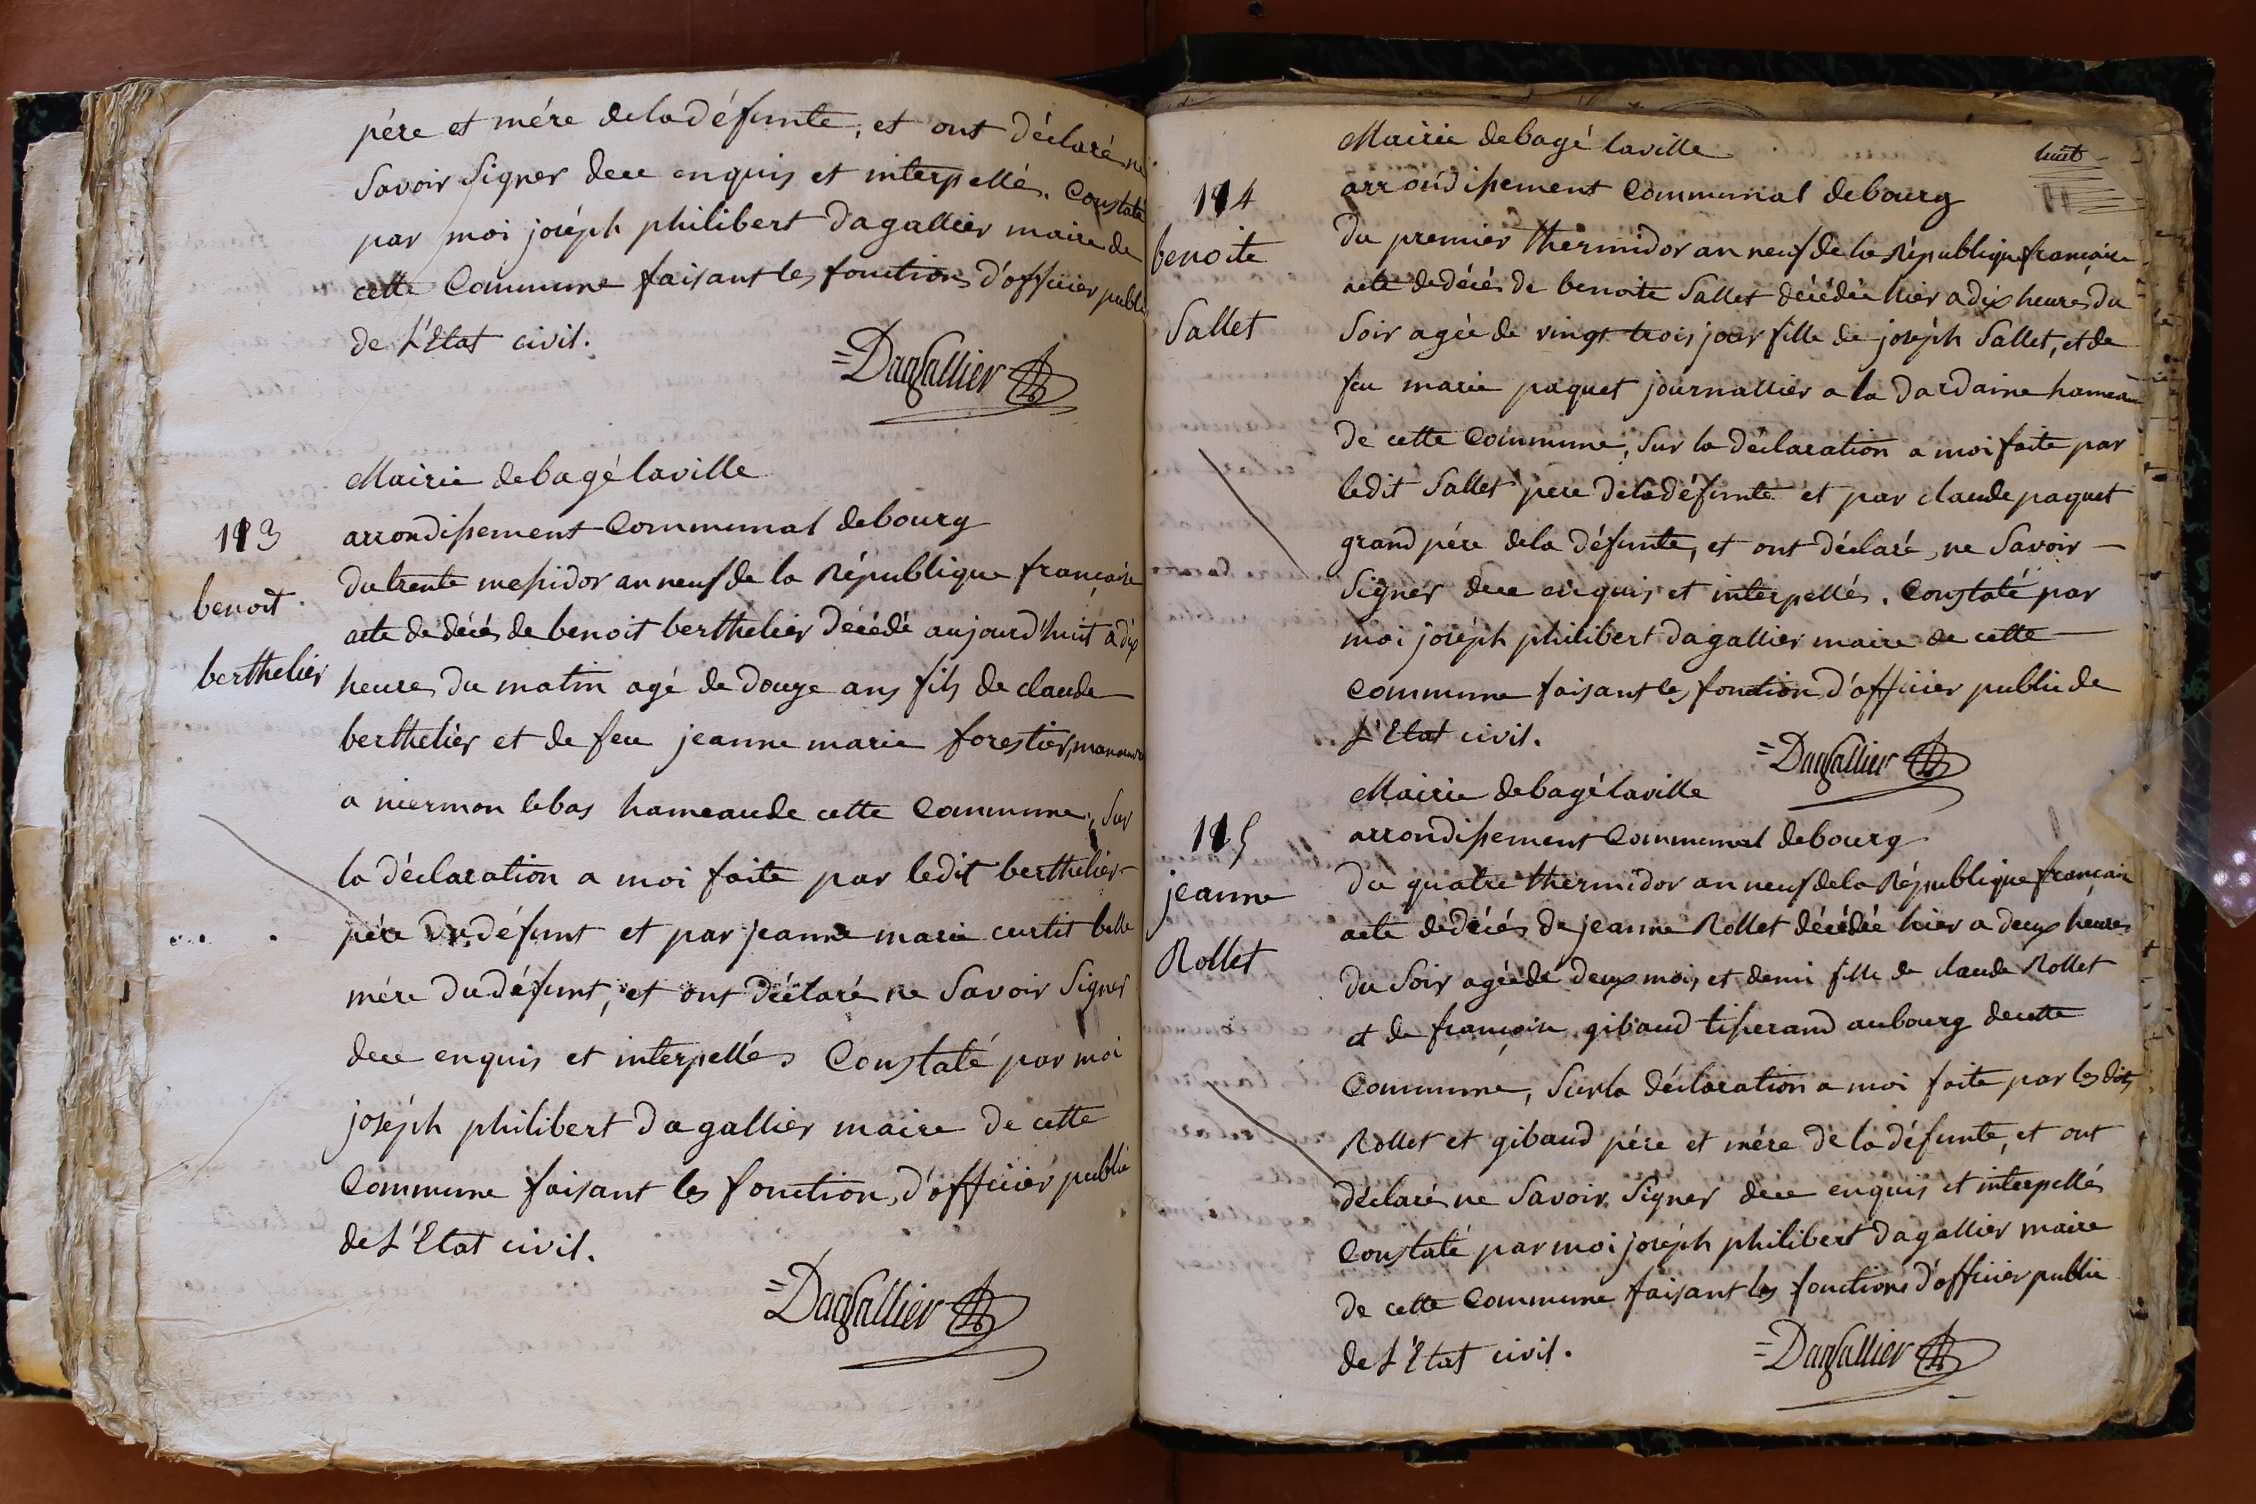 père et mére de la défunte, et ont déclaré ne
Savoir Signer de ce enquis et interpellé. Constaté
par moi joséph philibert Dagallier maire de
cette Commune faisant les fonctions d'officier publi
de L'Etat civil.
=Dagallier
Mairie de bagé laville
arrondissement Communal de bourg
113
du trente messidor an neuf de la République française
benoit
berthelier
acte de décés de benoit berthelier décédé aujourd'huit à dix
heures du matin agé de douze ans fils de claude
berthelier et de feu jeanne marie forestier, manouvr
a niermon le bas hameau de cette Commune, Sur
la déclaration a moi faite par ledit berthelier
pére du défunt et par jeanne marie curtit belle
mére du défunt, et ont déclaré ne Savoir Signer
de ce enquis et interpellés Constaté par moi
joséph philibert Dagallier maire de cette
Commune faisant les fonction d'officier public
de L'Etat civil.
=Dagallier
huit
Mairie de bagé laville
arrondissement Communal de bourg
114
benoite
Sallet
Du premier thermidor an neuf de la République française
acte de décés de benoite Sallet décédée hier a dix heures du
Soir agée de vingt trois jour fille de joséph Sallet, et de
feu marie paquet journallier a la Dardaine hameau
de cette Commune, Sur la déclaration a moi faite par
ledit Sallet pere de la défunte et par claude paquet
grand pére de la défunte, et ont déclaré ne Savoir
Signer de ce enquis et interpellés. Constaté par
moi joséph philibert Dagallier maire de cette
Commune faisant les fonction d'officier public de
L'Etat civil.
=Dagallier
Mairie de bagé laville
arrondissement Communal de bourg
115
jeanne
Rollet
Du quatre thermidor an neuf de la République français
acte de décés de jeanne Rollet décédée hier a deux heures
du Soir agée de deux mois et demi fille de claude Rollet
et de françoise gibaud tisserand au bourg de cette
Commune, Sur la déclaration a moi faite par les dits
Rollet et gibaud pére et mére de la défunte, et ont
déclaré ne Savoir Signer de ce enquis et interpellés
Constaté par moi joséph philibert Dagallier maire
de cette Commune faisant les fonctions d'officier public
de L'Etat civil.
=Dagallier